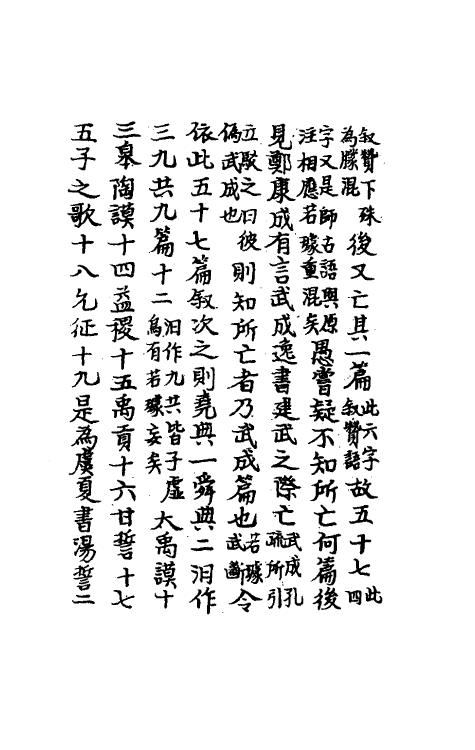 叙贊下殊為朦混後又亡其一篇此六字叙贊語故五十七此四
字又是師古語與原注相應若璩重混矣愚嘗疑不知所亡何篇後
見鄭康成有言武成逸書建武之際亡武成孔疏所引
立駁之曰彼偽武成也則知所亡者乃武成篇也若璩武斷今
依此五十七篇叙次之則堯典一舜典二汨作
三九共九篇十二汨作九共皆子虛烏有若璩妄矣大禹謨十
三皋陶謨十四益稷十五禹貢十六甘誓十七
五子之歌十八乞征十九是為虞夏書湯誓二